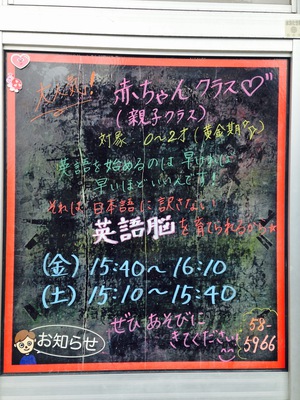 大人気!!
赤ちゃんクラス♡
(親子クラス)
対象 0〜2才(黄金期です)
英語を始めるのは早ければ
早いほどいいんです!
それは、日本語に訳さない
英語脳を育てられるから★
(金) 15:40〜16:10
(土) 15:10〜15:40
ぜひあそびに
きてください!
58-
5966
お知らせ